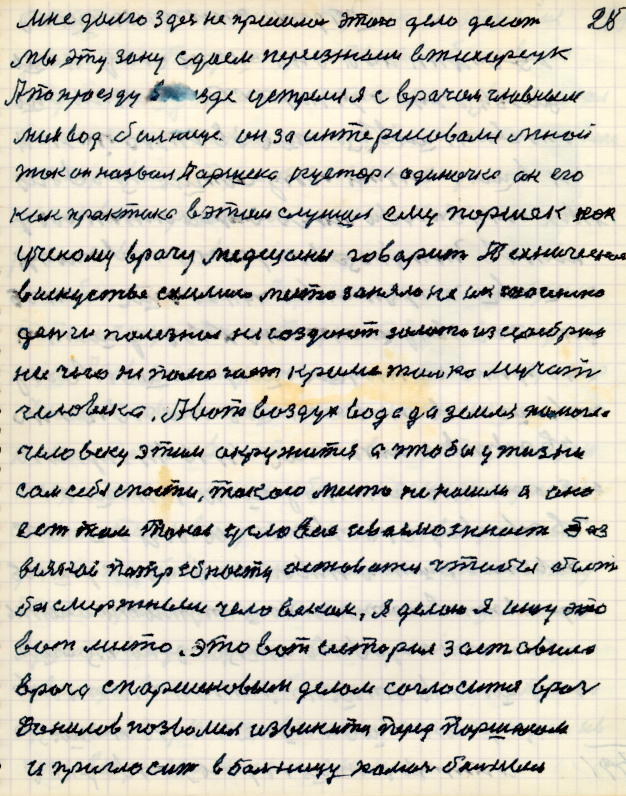 Мне долго здес не пришлос этого дело делат 28
мы эту зону сдаем переезжаем в тихорецк
А по проезду в езде устрелся я с врачом главным
мин вод болнице он за интерисовался мной
ток он назвал Паршека кустор одиночка он его
как практика в этом слушал ему паршек как
ученому врачу медецины говарит Техническое
в искуство химию место заняло не их
денги полезная не создают золото из серебрно
не чего не помогает кроме толко мучит
человека. А вот воздух вода да земля помогла
человеку этим окружится а чтобы у жизни
сам себя спасти, такого место не нашли а оно
ест там такое условие и возможност без
всякой потребности остоватся чтобы быть
бесмертным человеком, я делаю я ищу это
вот место. Это вот история заставила
врача с паршековым делом согласится врач
Данилов позволил извинится перед Паршеком
и пригласит в болницу хамач болным